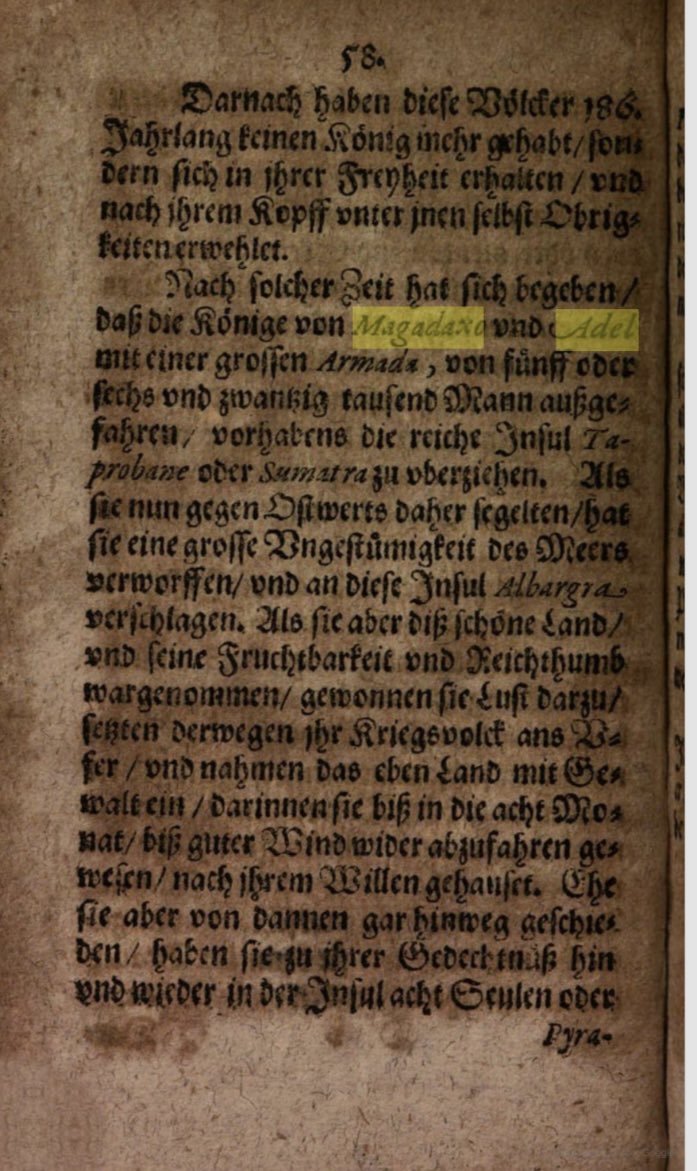 58.
Darnach haben diese Völcker 186.
Jahrlang keinen König mehr gehabt/ son-
dern sich in jhrer Freyheit erhalten / vnd
nach jhrem Kopff vnter jnen selbst Obrig-
keiten erwehlet.
Nach solcher Zeit hat sich begeben/
daß die Könige von Magadaxo vnd Adel
mit einer grossen Armada, von fünff oder
sechs vnd zwantzig tausend Mann außge-
fahren/ vorhabens die reiche Insul Ta-
probane oder Sumatra zu vberziehen. Als
sie nun gegen Ostwerts daher segelten/hat
sie eine grosse Vngestümigkeit des Meers
verworffen/ vnd an diese Insul Albargra
verschlagen. Als sie aber diß schöne Land/
vnd seine Fruchtbarkeit vnd Reichthumb
wargenommen/ gewonnen sie Lust darzu/
setzten derwegen jhr Kriegsvolck ans V-
fer / vnd nahmen das eben Land mit Ge-
walt ein / darinnen sie biß in die acht Mo-
nat/ biß guter Wind wider abzufahren ge-
wesen/ nach jhrem Willen gehauset. Ehe
sie aber von dannen gar hinweg geschie-
den/ haben sie zu jhrer Gedechtnüß hin
vnd wieder in der Insul acht Seulen oder
Pyra-